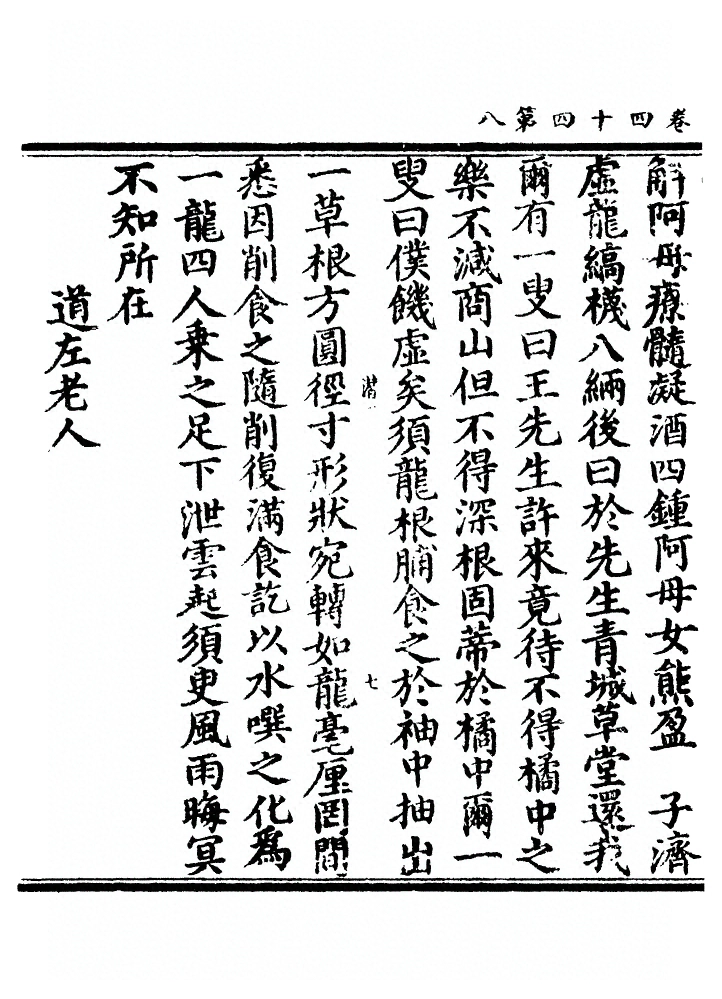 卷四十四第八
斛阿母療髓凝酒四鍾阿母女熊盈 子濟
虛龍縞襪八緉後日於先生青城草堂還我
爾有一叟曰王先生許來竟待不得橘中之
樂不減商山但不得深根固蒂於橘中爾一
叟曰僕饑虛矣須龍根脯食之於袖中抽出
潜 七
一草根方圓徑寸形狀宛轉如龍毫厘罔閒
悉因削食之隨削復滿食訖以水噀之化爲
一龍四人乗之足下泄雲起須臾風雨晦冥
不知所在
道左老人